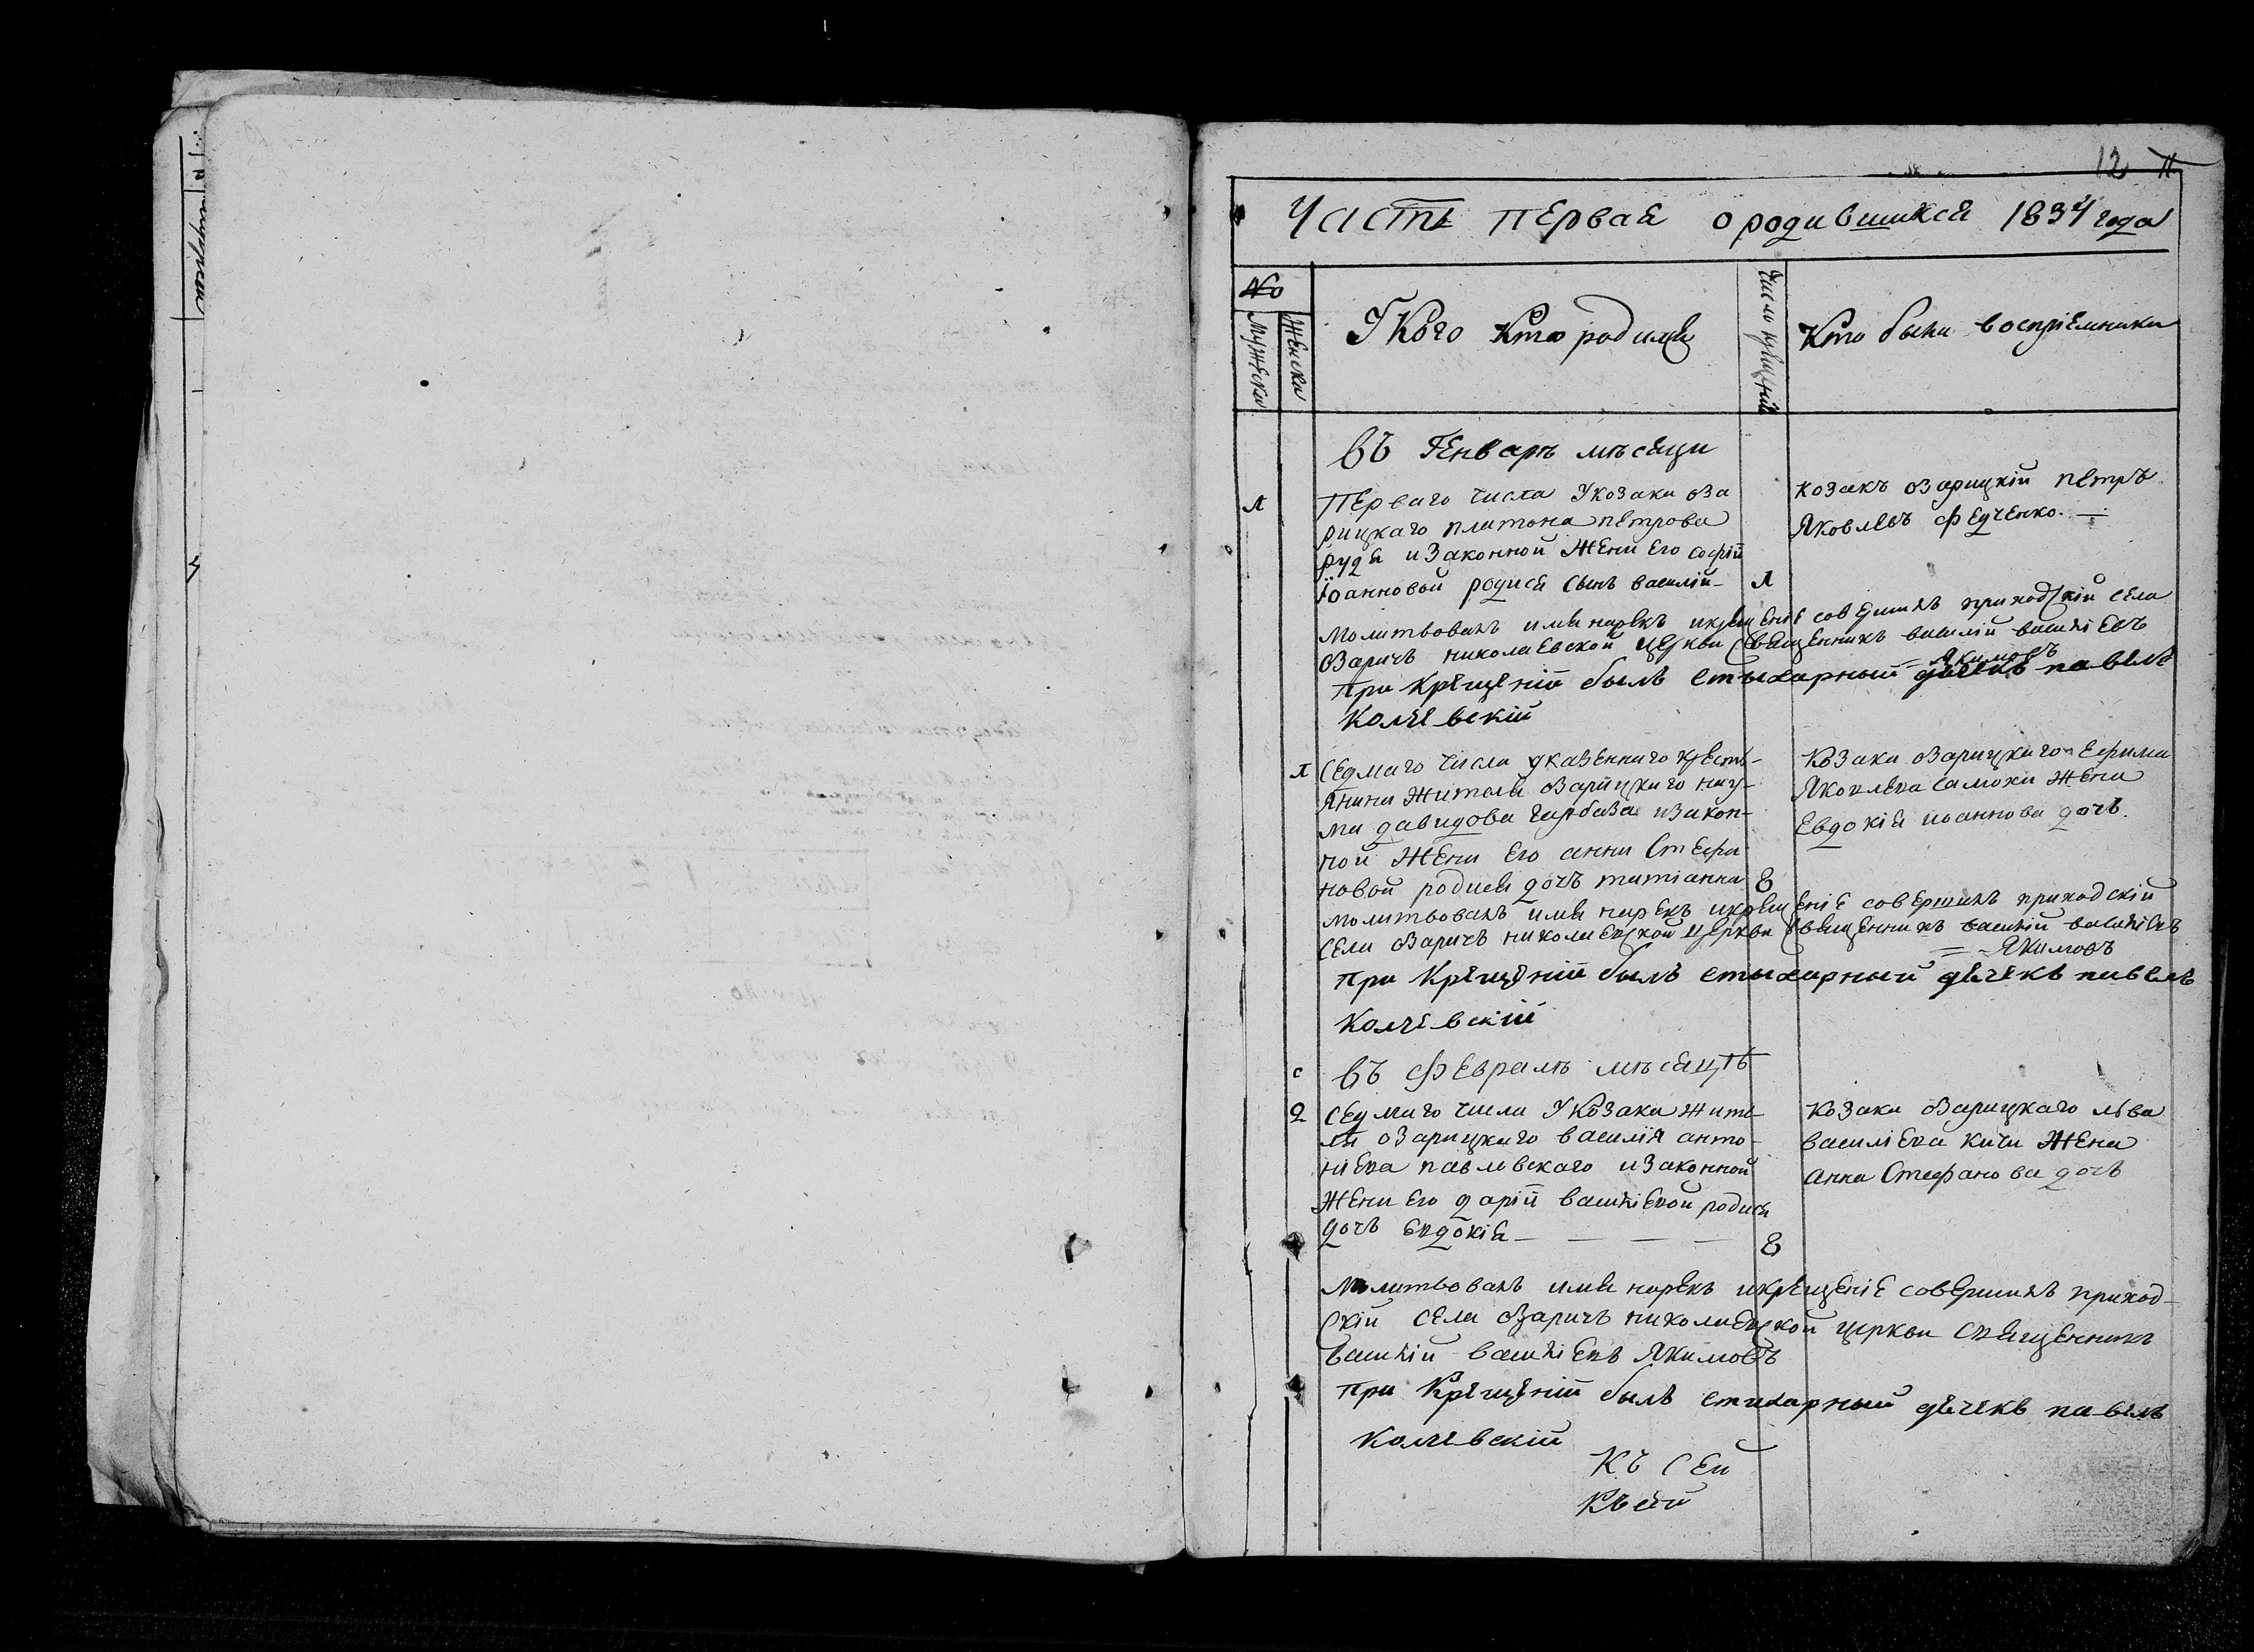 12
Часть первая о родившихся 1834 года
№
Мужеска
Женска
У Кого Кто родился
Число крещений
Кто были восприемники
Въ Генварѣ мѣсяци
1
Перваго числа У козака оза
рицкаго платона петрова
рудя и Законной Жени его софій
Іоанновой родися сынъ василій
1
козакъ озарицкій петръ
Яковлевъ федченко.
молитвовалъ имя нарекъ и крещеніе совершилъ приходскій села
Озаричъ николаевской церкви священникъ василій василіевъ
Якимовъ
при Крещеній былъ стыхарный дячекъ павелъ
Колчевскій
1
Седмаго числа у казеннаго крестя-
янина Жителя озарицкаго нау-
ма давидова гарбаза и закон-
ной Жени его анни Стефа
новой родися дочь татіанна
8
Козака озарицкаго Ефима
Яковлева самохи Жена
Евдокія иоаннова дочь.
молитвовалъ имя нарекъ и крещеніе совершилъ приходскій
села озаричъ николаевской церкви священникъ василій василіевъ
Якимовъ
при Крещеній былъ стыхарный дячекъ павелъ
Колчевскій
въ февралѣ мѣсяцѣ
2
Седмаго числа У Козака жите
ля озарицкаго василія анто-
ніева павловскаго и Законной
Жени его дарій василіевой родися
дочь евдокія
8
Козака озарицкаго льва
василіева кичи Жена
анна Стефанова дочь
Молитвовалъ имя нарекъ и крещеніе совершилъ приход-
скій села озаричъ николаевской церкви священникъ
василій василіевъ Якимовъ
при Крещеній былъ стихарный дячекъ павелъ
Колчевскій
Къ Сей